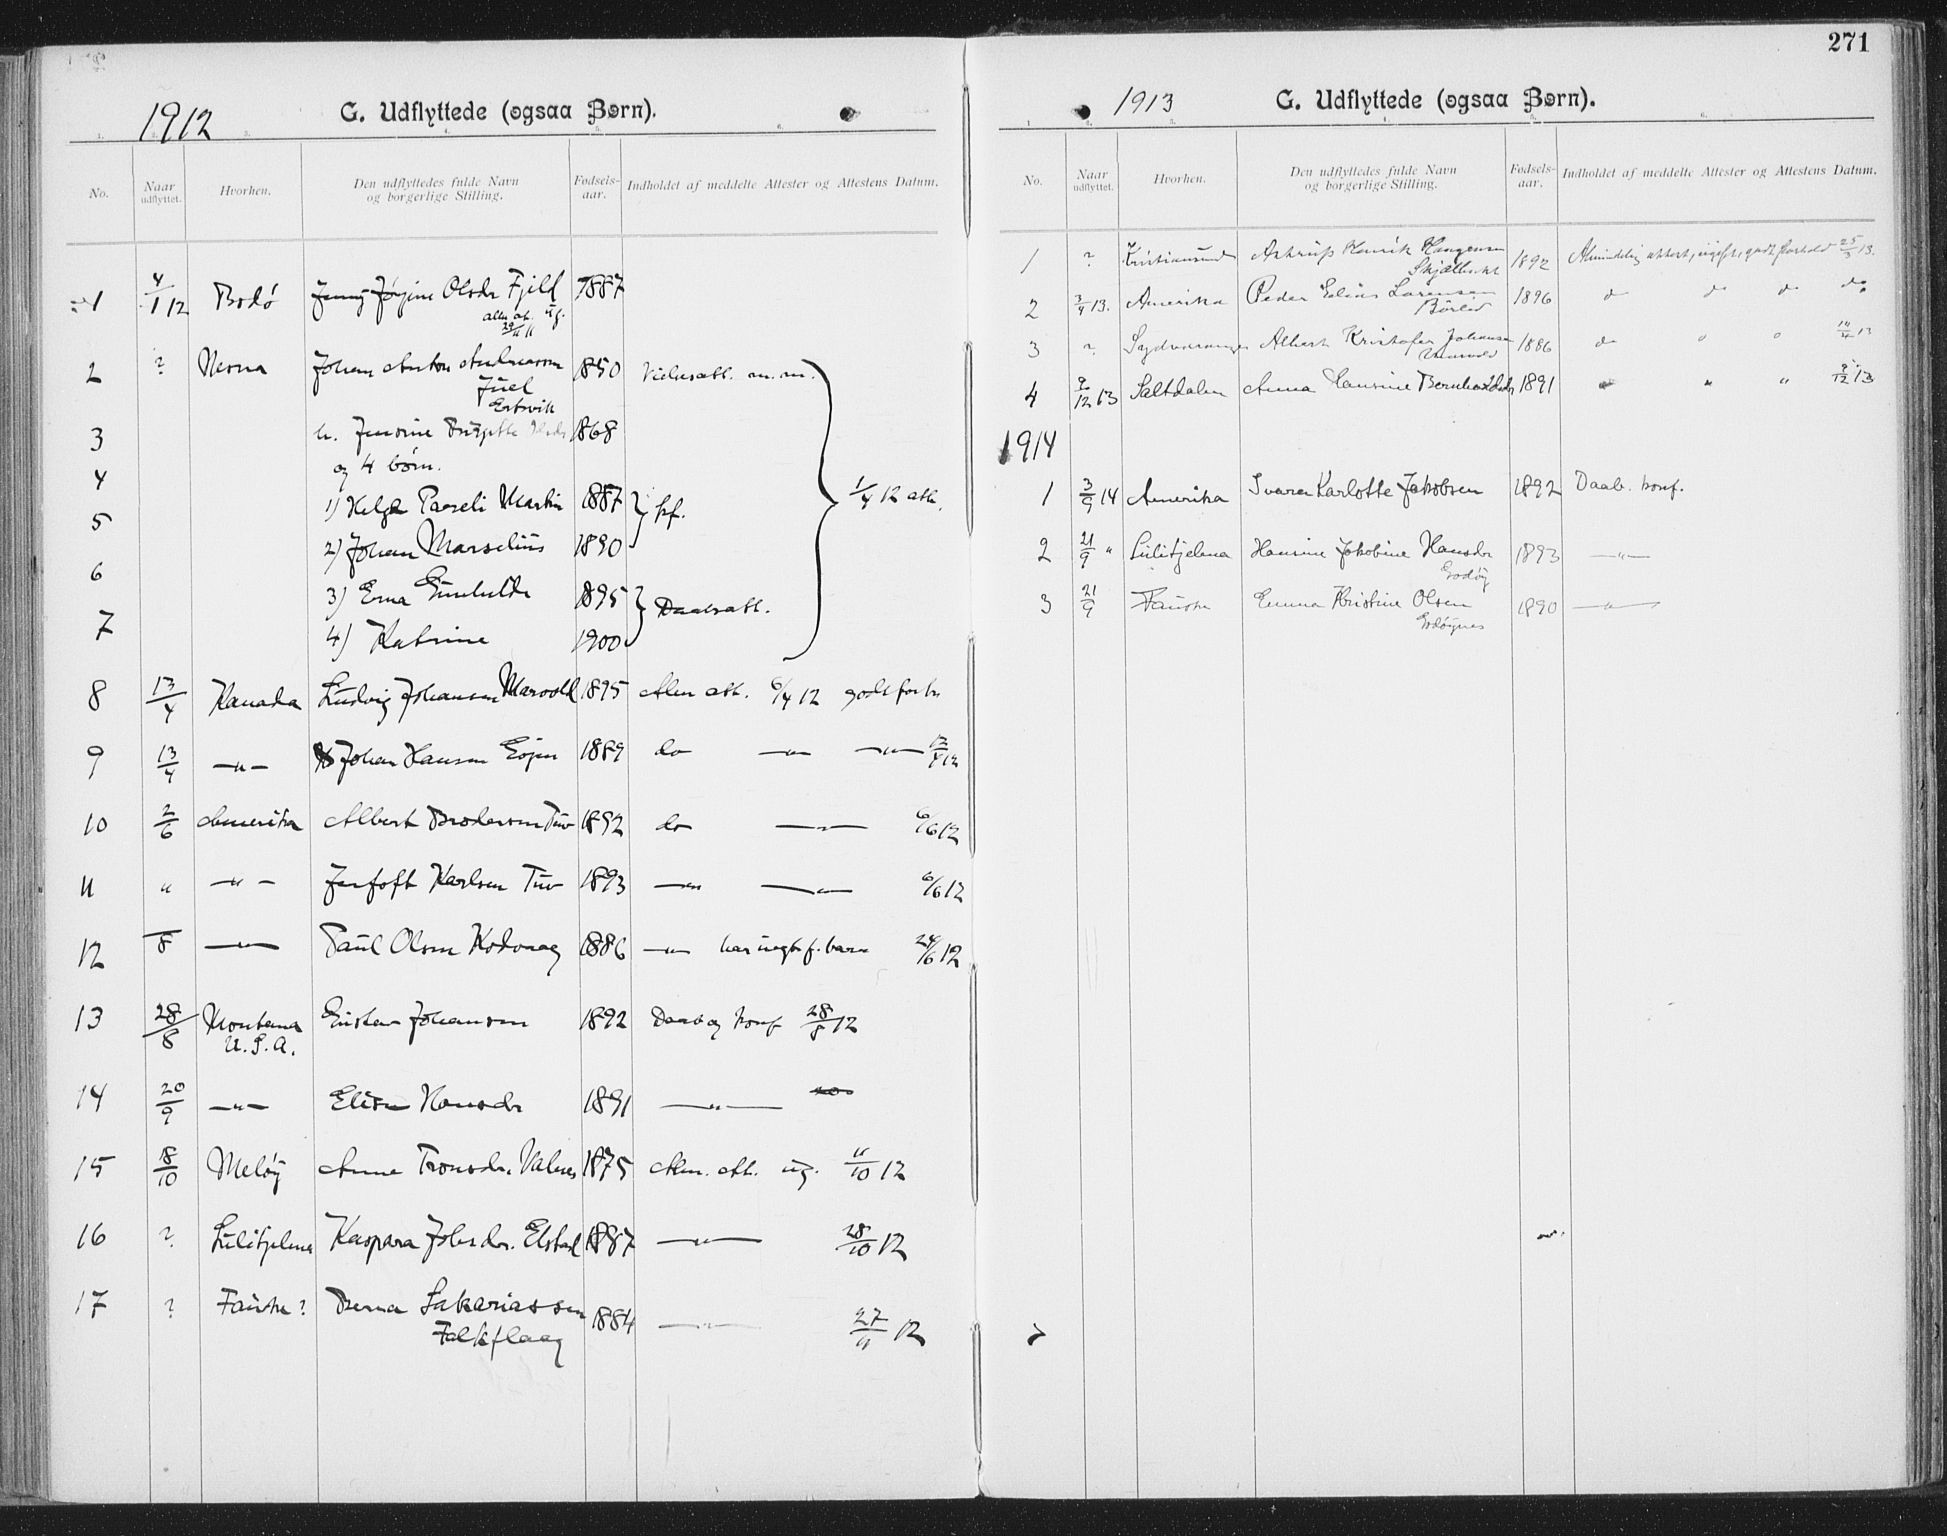 1912
G. Udflyttede (ogsaa Børn).
No. Naar udflyttet. Hvorhen. Den udflyttedes fulde Navn og borgerlige Stilling. Fødsels-aar. Indholdet af meddelte Attester og Attestens Datum.
1 4/1 12 Bodø Jenny Jørgine Olsdr Fjild 1887
29/11 11
2 ? Johan Anton 1850
Juel
3 1868
4 og 4 børn.
5 1) Helge Martin 1887 kf. 1/4 12 att.
2) Johan Marselius 1890
6 3) Erna 1895 Daabsatt.
7 4) Katrine 1900
8 13/4 Kanada Ludvig Johansen Marvold 1895 Alm att. 6/4 12 godt forh
9 13/4 —"— Johan Hansen 1889 do —"— —"— 12
10 2/6 Amerika Albert Brodersen Tuv 1892 do —"— 6/6 12
11 " —"— Karlsen Tuv 1893 —"— —"— 6/6 12
12 8 —"— Paul Olsen Kodvaag 1886 —"— har uegte f. barn 24/6 12
13 28/8 Montana Gustav Johansen 1892 Daab og konf 28/8 12
U.S.A.
14 20/9 —"— Hansdr 1891 —"—
15 18/10 Meløy Anne Tronsdr. Valnes 1875 Alm. att. ug. 11/10 12
16 ? Sulitjelma Kaspara Johsdr. Elstad 1887 —"— 28/10 12
17 ? Fauske? Berna Sakariassen 1884 —"— 27/11 12
Falkflaag
271
1913
G. Udflyttede (ogsaa Børn).
No. Naar udflyttet. Hvorhen. Den udflyttedes fulde Navn og borgerlige Stilling. Fødsels-aar. Indholdet af meddelte Attester og Attestens Datum.
1 ? Kristiansund Astrup Henrik Haagensen 1892 Almindelig attest, ugift, godt forhold 25/3 13.
2 3/4 13. Amerika Peder Edias Larensen 1896 do do do do
3 ? Sydvaranger Albert Kristofer Johansen 1886 do " " 14/4 13
4 9/12 13 Saltdalen Anna Hansine Bernhardsdr 1891 " " " 9/12 13
1914
1 3/9 14 Amerika Karlotte Jakobsen 1892 Daab. konf.
2 21/9 " Sulitjelma Hansine Jakobine Hansdr 1893 —"—
Godøy
3 21/9 Fauske Emma Kristine Olsen 1890 —"—
Godøynes